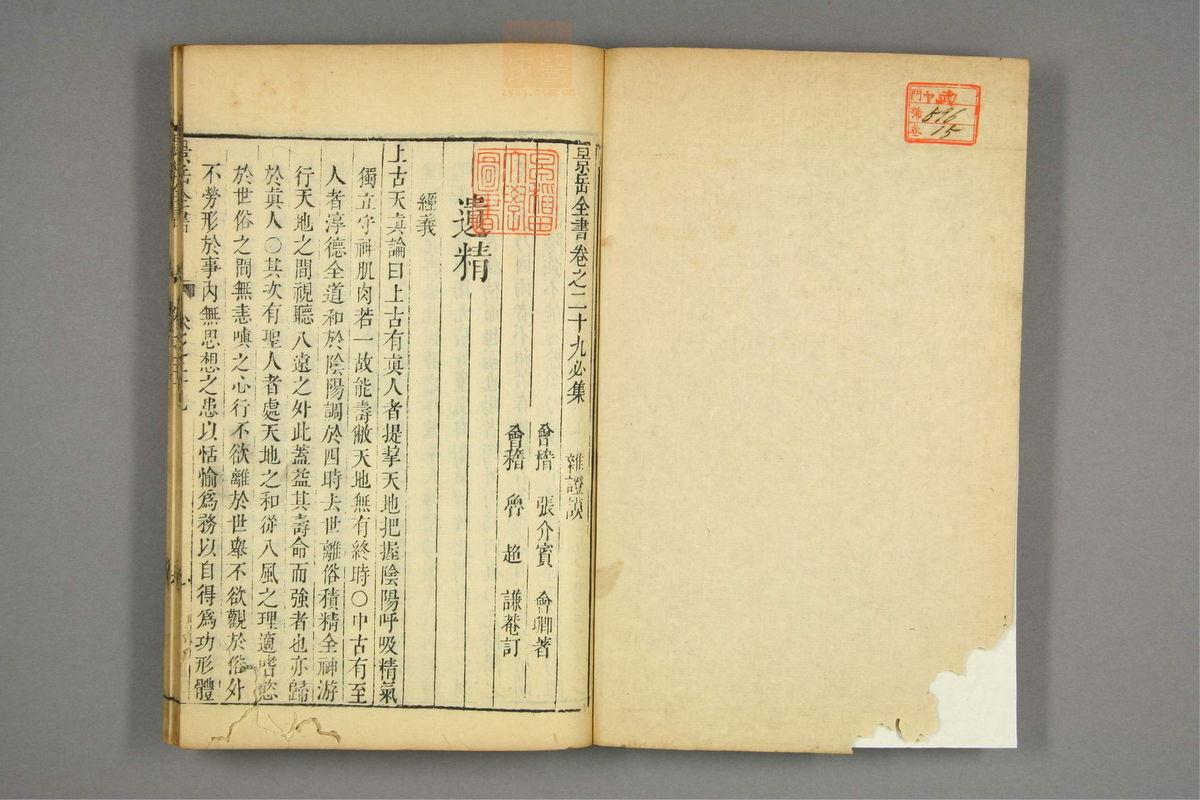 門 ヤ 武
號 896
卷 15
景岳全書卷之二十九必集 雜證謨
會稽 張介賓 會卿著
會稽 魯 超 謙菴訂
早稲田大學圖書
遺精
經義
上古天真論曰上古有真人者提挈天地把握陰陽呼吸精氣
獨立守神肌肉若一故能壽敝天地無有終時○中古有至
人者淳德全道和於陰陽調於四時去世離俗積精全神游
行天地之間視聽八遠之外此蓋益其壽命而強者也亦歸
於真人○其次有聖人者處天地之和從八風之理適嗜慾
於世俗之間無恚嗔之心行不欲離於世舉不欲觀於俗外
不勞形於事內無思想之患以恬愉為務以自得為功形體
景岳全書